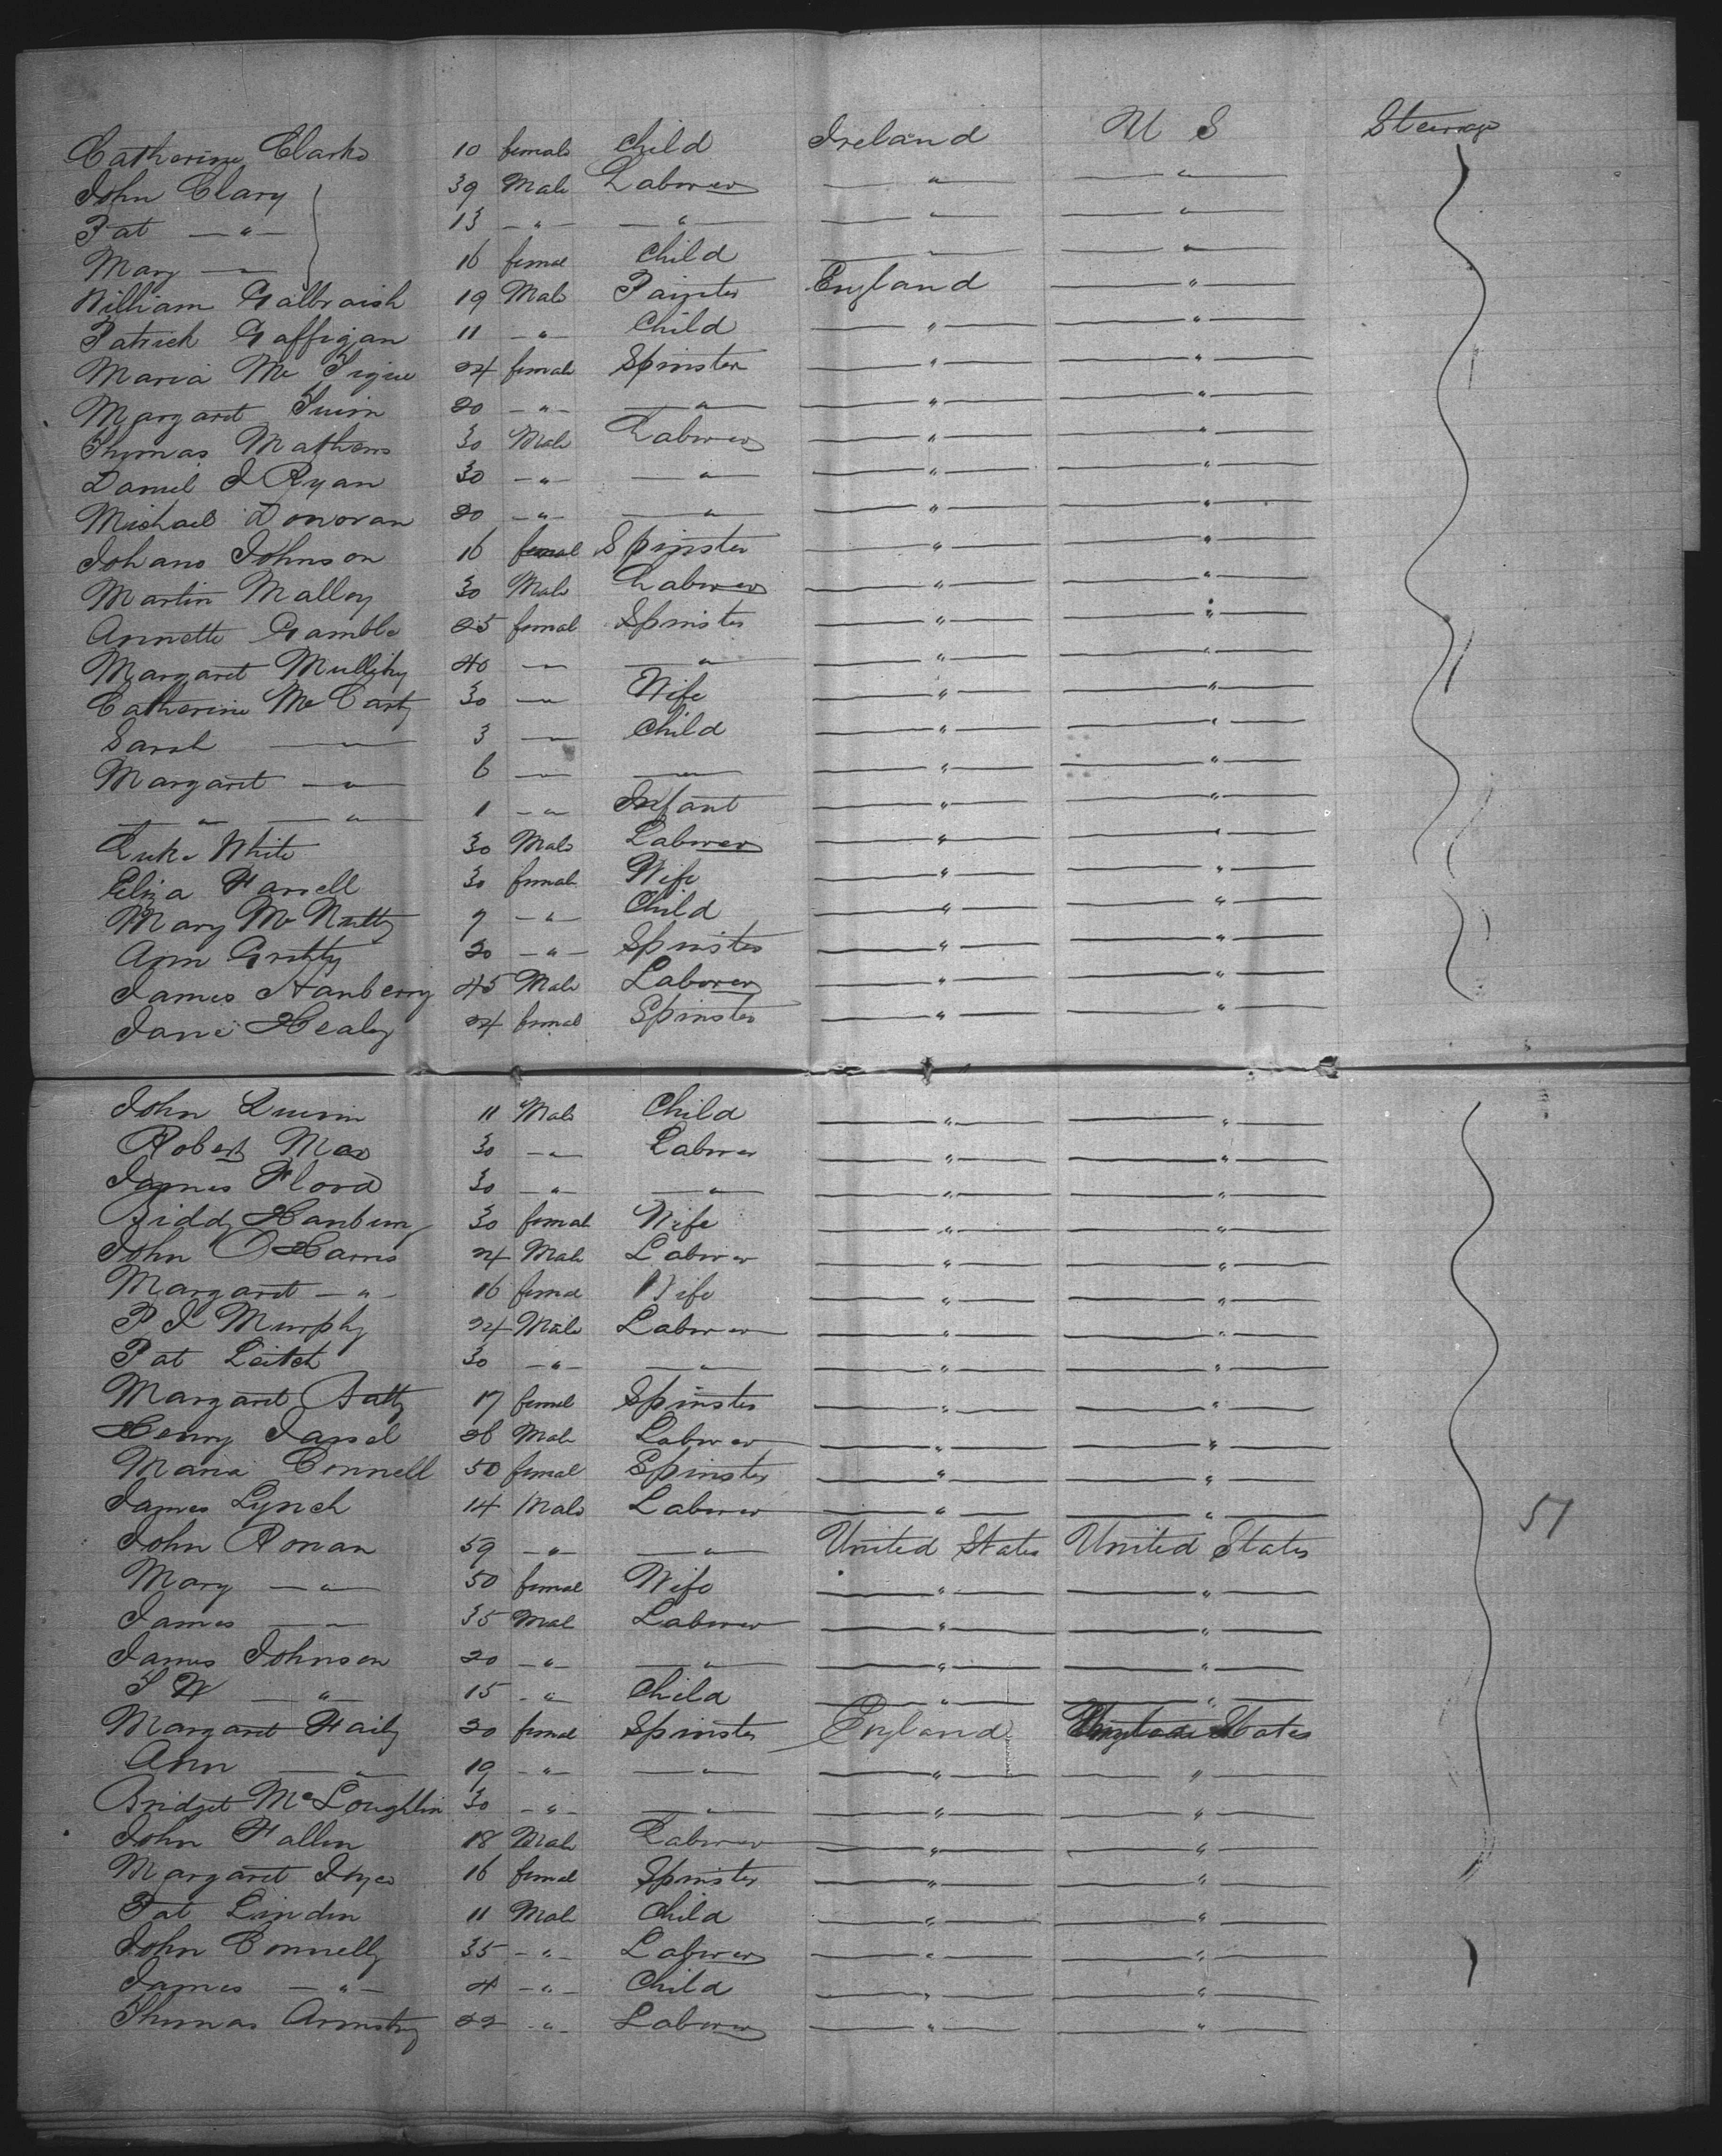 Catherine Clarke 10 female Child Ireland U S Steerage
John Clary 39 Male Laborer " "
Pat " 13 " " " "
Mary " 16 femal Child " "
William Galbraish 19 Male Painter England "
Patrick Gaffigan 11 " Child " "
Maria Mc Tigue 24 female Spinster " "
Margaret Quinn 20 " " " "
Thomas Mathews 30 Male Laborer " "
Daniel J Ryan 30 " " " "
Michael Donovan 20 " " " "
Johano Johnson 16 femal Spinster " "
Martin Malley 30 Male Laborer " "
Annette Gamble 25 femal Spinster " "
Margaret 40 " " " "
Catherine Mc Carty 30 " Wife " "
Sarah " 3 " Child " "
Margaret " 6 " " " "
" " 1 " Infant " "
Luke White 30 Male Laborer " "
Eliza Farrell 30 female Wife " "
Mary Mc Nutty 9 " Child " "
Ann Gratty 20 " Spinster " "
James Hanberry 45 Male Laborer " "
Jane Healy 24 femal Spinster " "
John Quinn 11 Male Child " "
Robert Max 30 " Laborer " "
James Flood 30 " " " "
Biddy Hanbury 30 femal Wife " "
John O Harris 24 Male Laborer " "
Margaret " 16 femal Wife " "
P J Murphy 24 Male Laborer " "
Pat Leitch 30 " " " "
Margaret Batty 17 femal Spinster " "
Henry 26 Male Laborer " "
Maria Connell 50 femal Spinster " "
James Lynch 14 Male Laborer " "
51
John Ronan 59 " " United States United States
Mary " 50 femal Wife " "
James " 35 Male Laborer " "
James Johnson 20 " " " "
J W " 15 " Child " "
Margaret Faily 20 femal Spinster England States
Ann " 19 " " " "
Bridget McLoughlin 30 " " " "
John Fallen 18 Male Laborer " "
Margaret 16 femal Spinster " "
Pat Linden 11 Male Child " "
John Connelly 35 " Laborer " "
James " 4 " Child " "
Thomas Armstrg 22 " Laborer " "